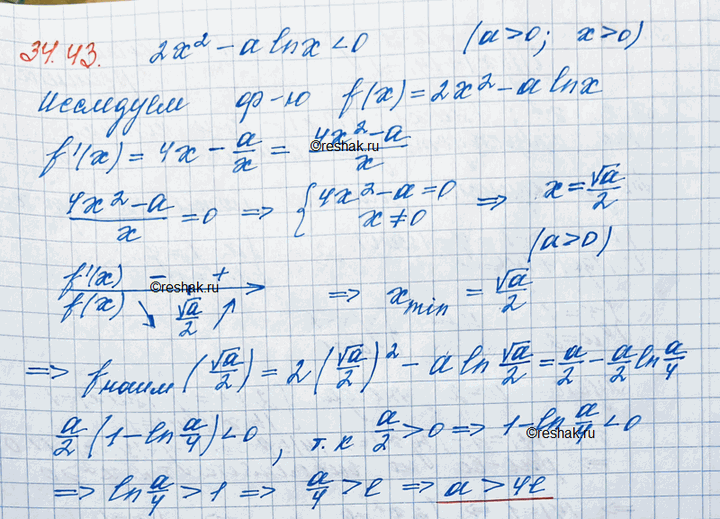 34.43. 2x² - a ln x < 0 (a>0; x>0)
Исследуем ф-ю f(x) = 2x² - a ln x
f'(x) = 4x - a/x = (4x² - a)/x
©reshak.ru
(4x² - a)/x = 0 => { 4x² - a = 0 x ≠ 0 => x = √a/2
(a>0)
f'(x) - +
©reshak.ru
f(x) ↘ √a/2 ↗ => x min = √a/2
=> f наим (√a/2) = 2(√a/2)² - a ln √a/2 = a/2 - a/2 ln a/4
a/2 (1 - ln a/4) < 0, т.к a/2 > 0 => 1 - ln a/4 < 0
©reshak.ru
=> ln a/4 > 1 => a/4 > e => a > 4e